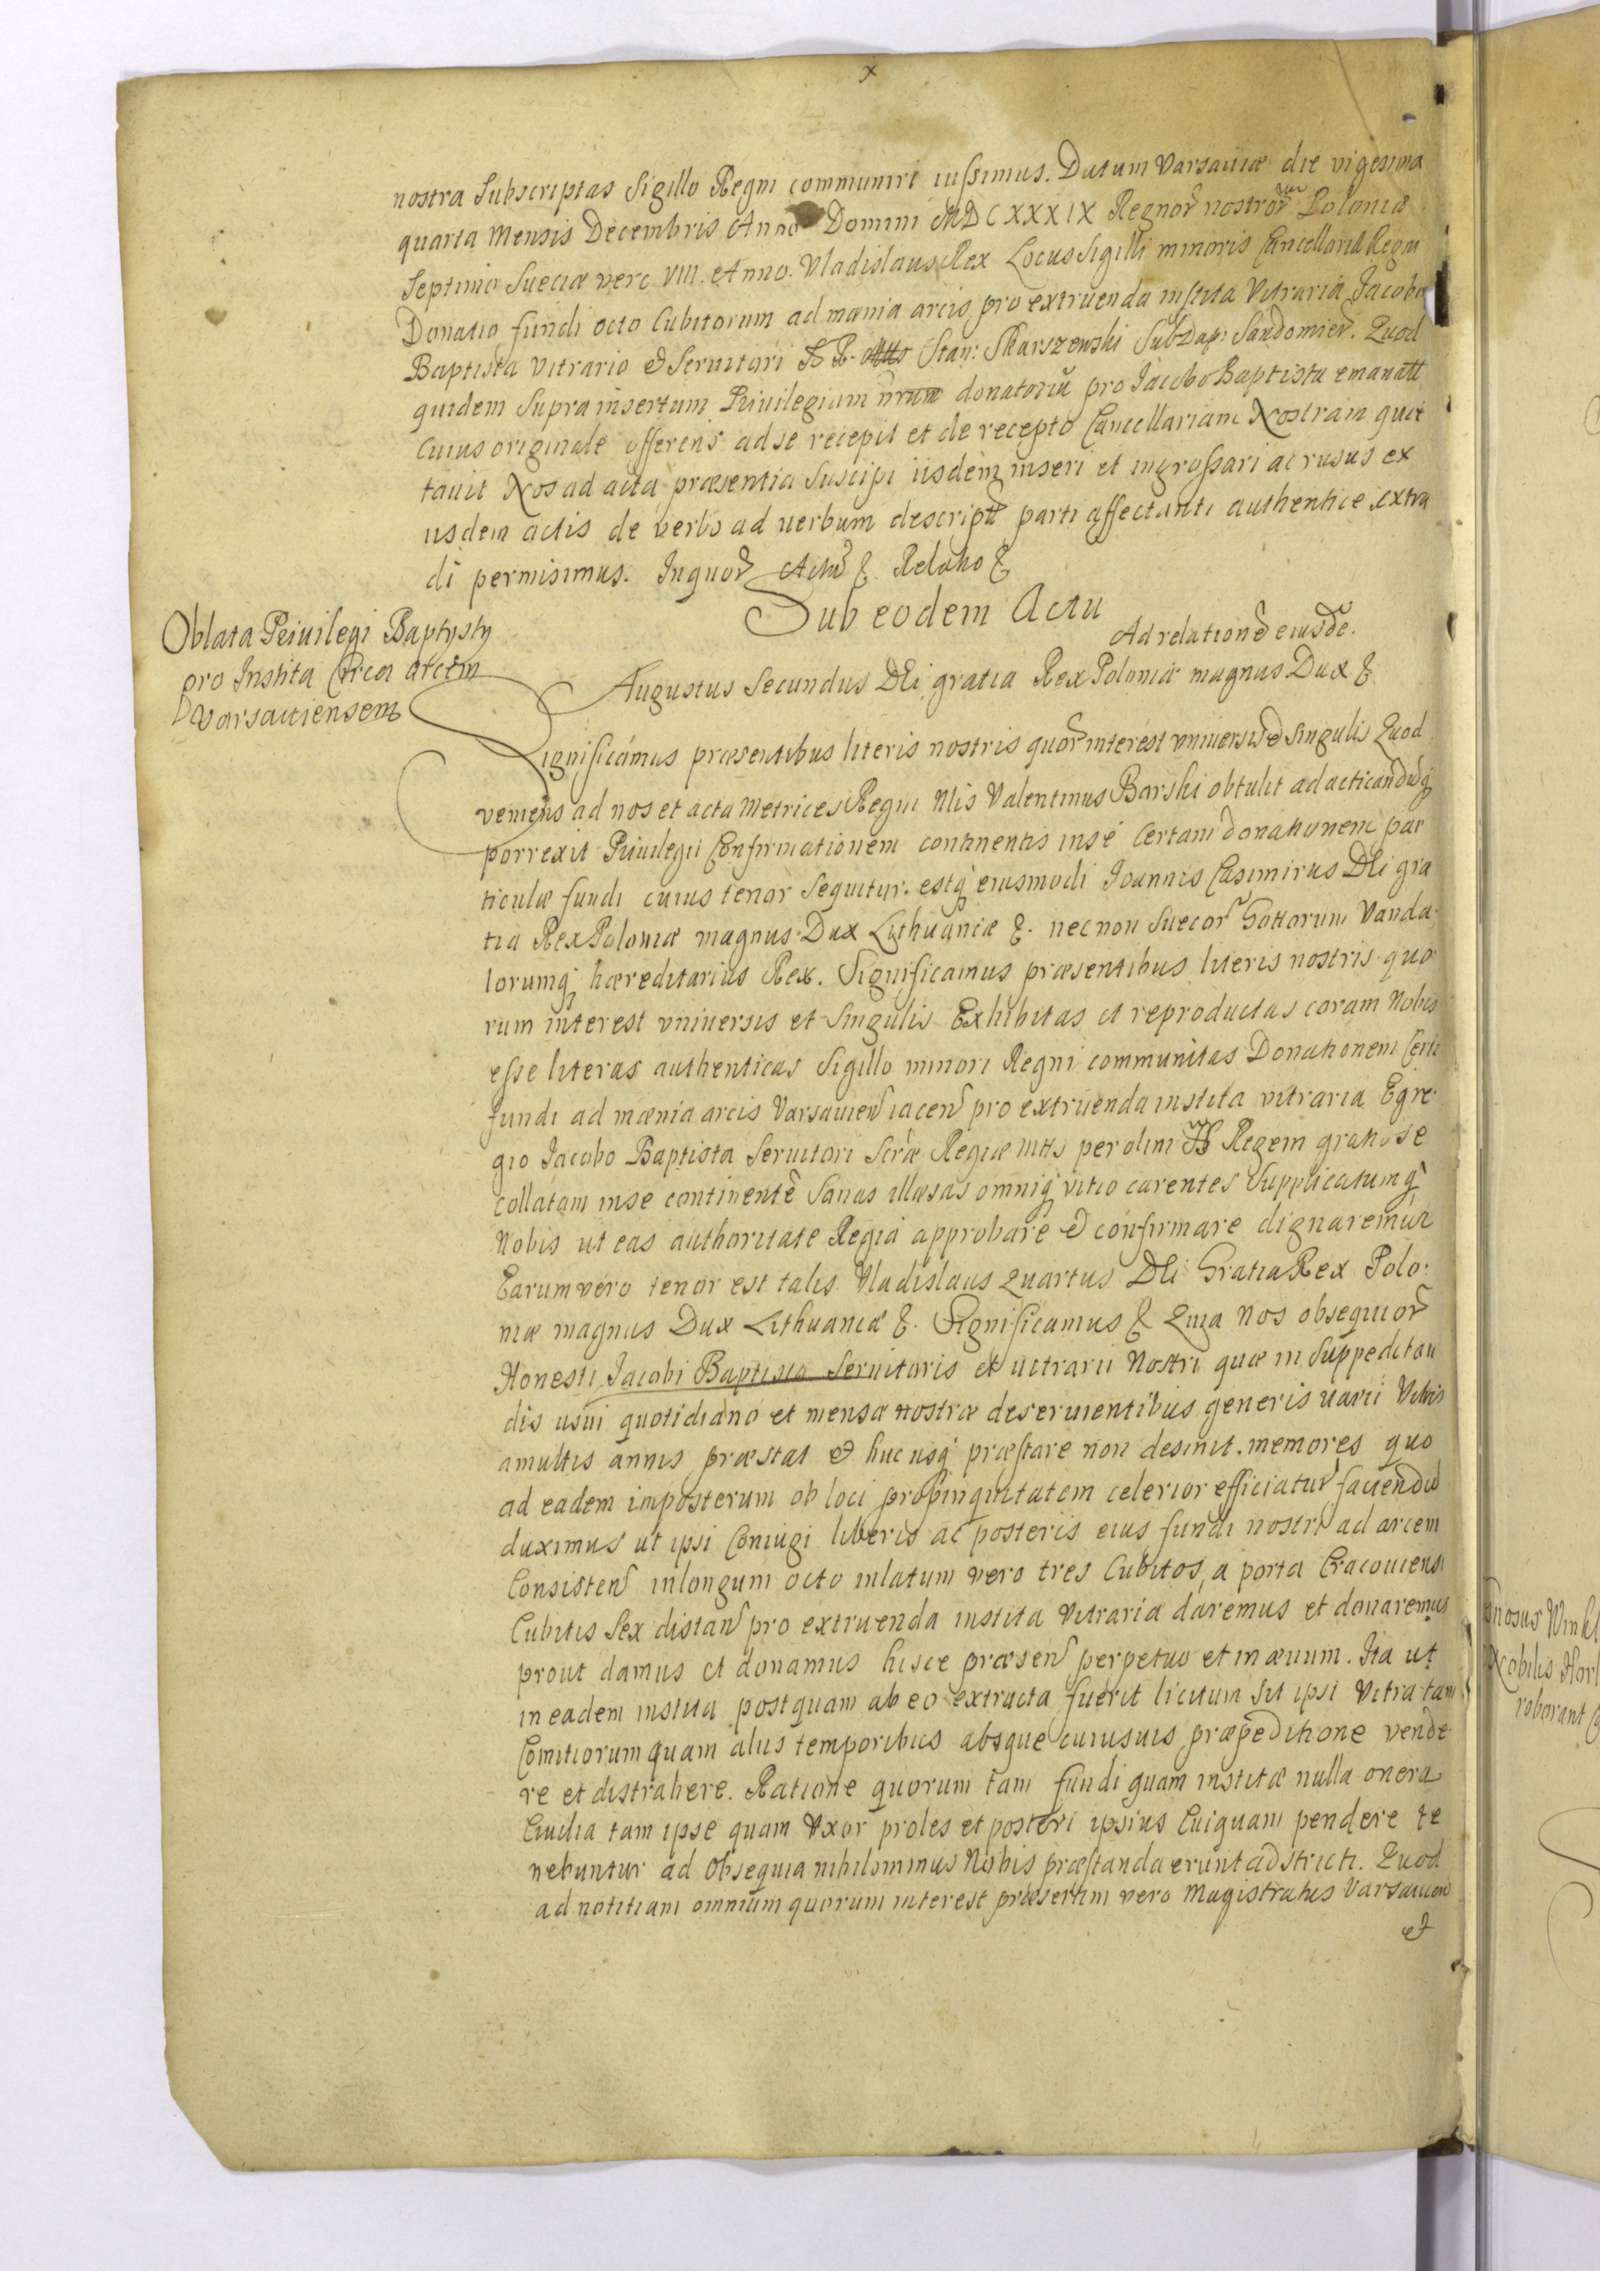 x
nostra Subscriptas Sigillo Regni communiri iussimus. Datum Varsaviæ die vigesima
quarta Mensis Decembris Anno Domini MDCXXXIX Regnor nostror Poloniæ
Septimo Sueciæ vero VIII. Anno. Vladislaus Rex Locus Sigilli minoris Cancellariæ Regni
Donatio fundi octo Cubitorum ad mænia arcis pro extruenda instita Vitraria Jacobo
Baptista Vitrario & Servitori Stan: Skarszewski SubDap: Sandomier. Quod
quidem Supra insertum Privilegium donatoriū pro Jacobo Baptista emanatū
Cuius originale offerens ad se recepit et de recepto Cancellariam Nostram quie
tavit Nos ad acta præsentia Suscipi iisdem inseri et ingrossari ac rusus ex
iisdem actis de verbo ad verbum descriptū parti affectanti authentice extra
di permisimus. In quor Relatio
Sub eodem Actu
Ad relationē eiusdē.
Oblata Privilegi Baptysty
pro Instita Circa arcem
Varsaviensem
Augustus Secundus DEi gratia Rex Poloniæ magnus Dux &
Significamus præsentibus literis nostris quor interest universis & Singulis Quod
veniens ad nos et acta Metrices Regni Nlis Valentinus Barski obtulit ad acticandūq
porrexit Privilegii Confirmationem continentis in sé Certam donationem par
ticulæ fundi cuius tenor Sequitur. estq eiusmodi Joannis Casimirus DEi gra
tia Rex Poloniæ magnus Dux Lithuaniæ &. nec non Suecor Gottorum Vanda
lorumq hæreditarius Rex. Significamus præsentibus literis nostris quo
rum interest vniversis et Singulis Exhibitas et reproductas coram Nobis
esse literas authenticas Sigillo minori Regni communitas Donationem Certi
fundi ad mænia arcis Varsavien iacen pro extruenda instita vitraria Egre
gio Jacobo Baptista Servitori Sacræ Regiæ Mttis per olim Regem gratiose
collatam in se continentē Sanas illæsas omniq vitio carentes Supplicatumq
Nobis ut eas authoritate Regiá approbare & confirmare dignaremur
Earum vero tenor est talis Vladislaus Quartus DEi Gratia Rex Polo
niæ magnus Dux Lithuaniæ &. Significamus & Quia Nos obsequior
Honesti Jacobi Baptista Servitoris et vitrarii Nostri quæ in Suppeditan
dis usui quotidiano et mensæ nostræ deservientibus generis varii Vitris
a multis annis præstat & huc usq præstare non desinit. memores quo
ad eadem imposterum ob loci propinquitatem celerior efficiatur, favendū
duximus ut ipsi Coniugi liberis ac posteris eius fundi nostri ad arcem
Consisten in longum octo in latum vero tres Cubitos, a porta Cracoviensi
Cubitis Sex distan pro extruenda instita Vitraria daremus et donaremus
prout damus et donamus hisce præsen perpetuo et in ævum. Ita ut
in eadem instita postquam ab eo extructa fuerit licitum Sit ipsi Vitra tam
Comitiorum quam aliis temporibus absque cuiusuis præpeditione vende
re et distrahere. Ratione quorum tam fundi quam institæ nulla onera
Civilia tam ipse quam Vxor proles et posteri ipsius Cuiquam pendere te
nebuntur ad Obsequia nihilominus Nobis præstanda erunt adstricti. Quod
ad notitiam omnium quorum interest præsertim vero Magistratus Varsavien
et
nosus Winkl
Nobilis Hor
roborant